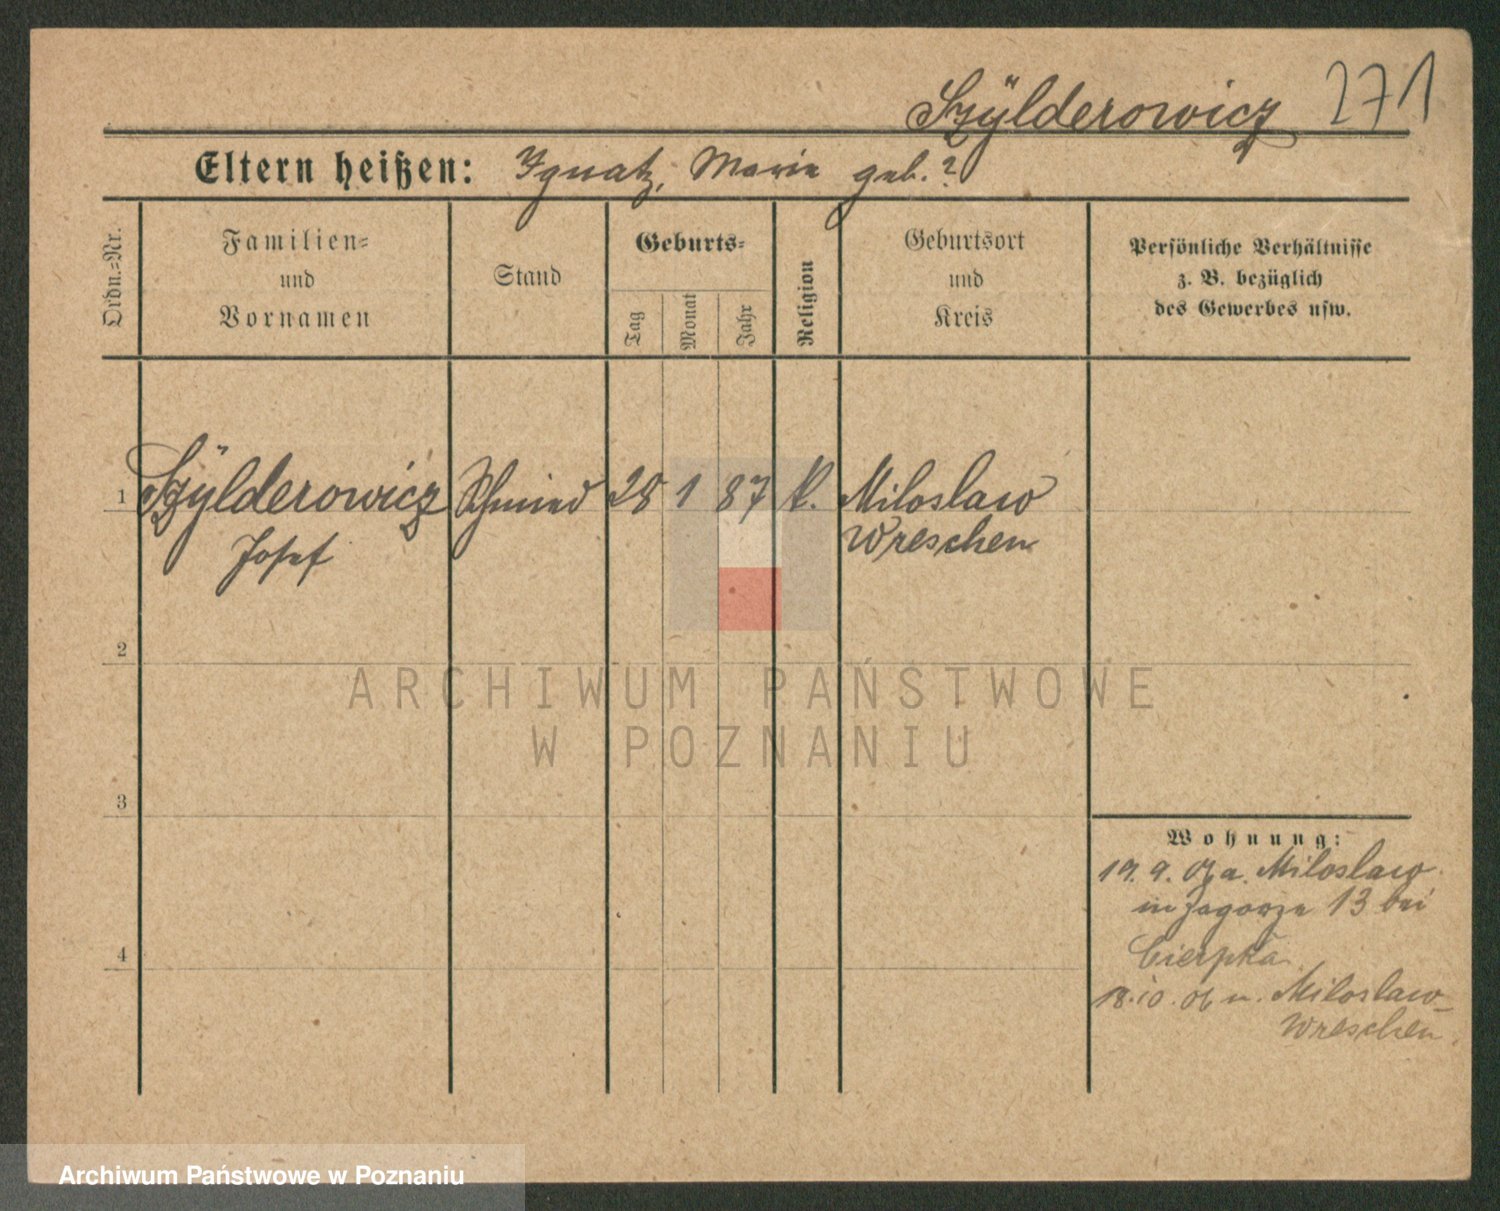 Szÿlderowicz 271
Eltern heißen: Ignatz, Marie geb. ?
Ordn.=Nr.
Familien=
und
Vornamen
Stand
Geburts=
Tag
Monat
Jahr
Religion
Geburtsort
und
Kreis
Persönliche Verhältnisse
z. B. bezüglich
des Gewerbes usw.
1 Szÿlderowicz Schmied 28 1 87 k. Miloslaw
Josef Wreschen
2
ARCHIWUM PAŃSTWOWE
W POZNANIU
3
Wohnung:
19. 9. 06 a. Miloslaw
in Zagorze 13 bei
Cierpka
4
18. 10. 06 n. Miloslaw
Wreschen
Archiwum Państwowe w Poznaniu